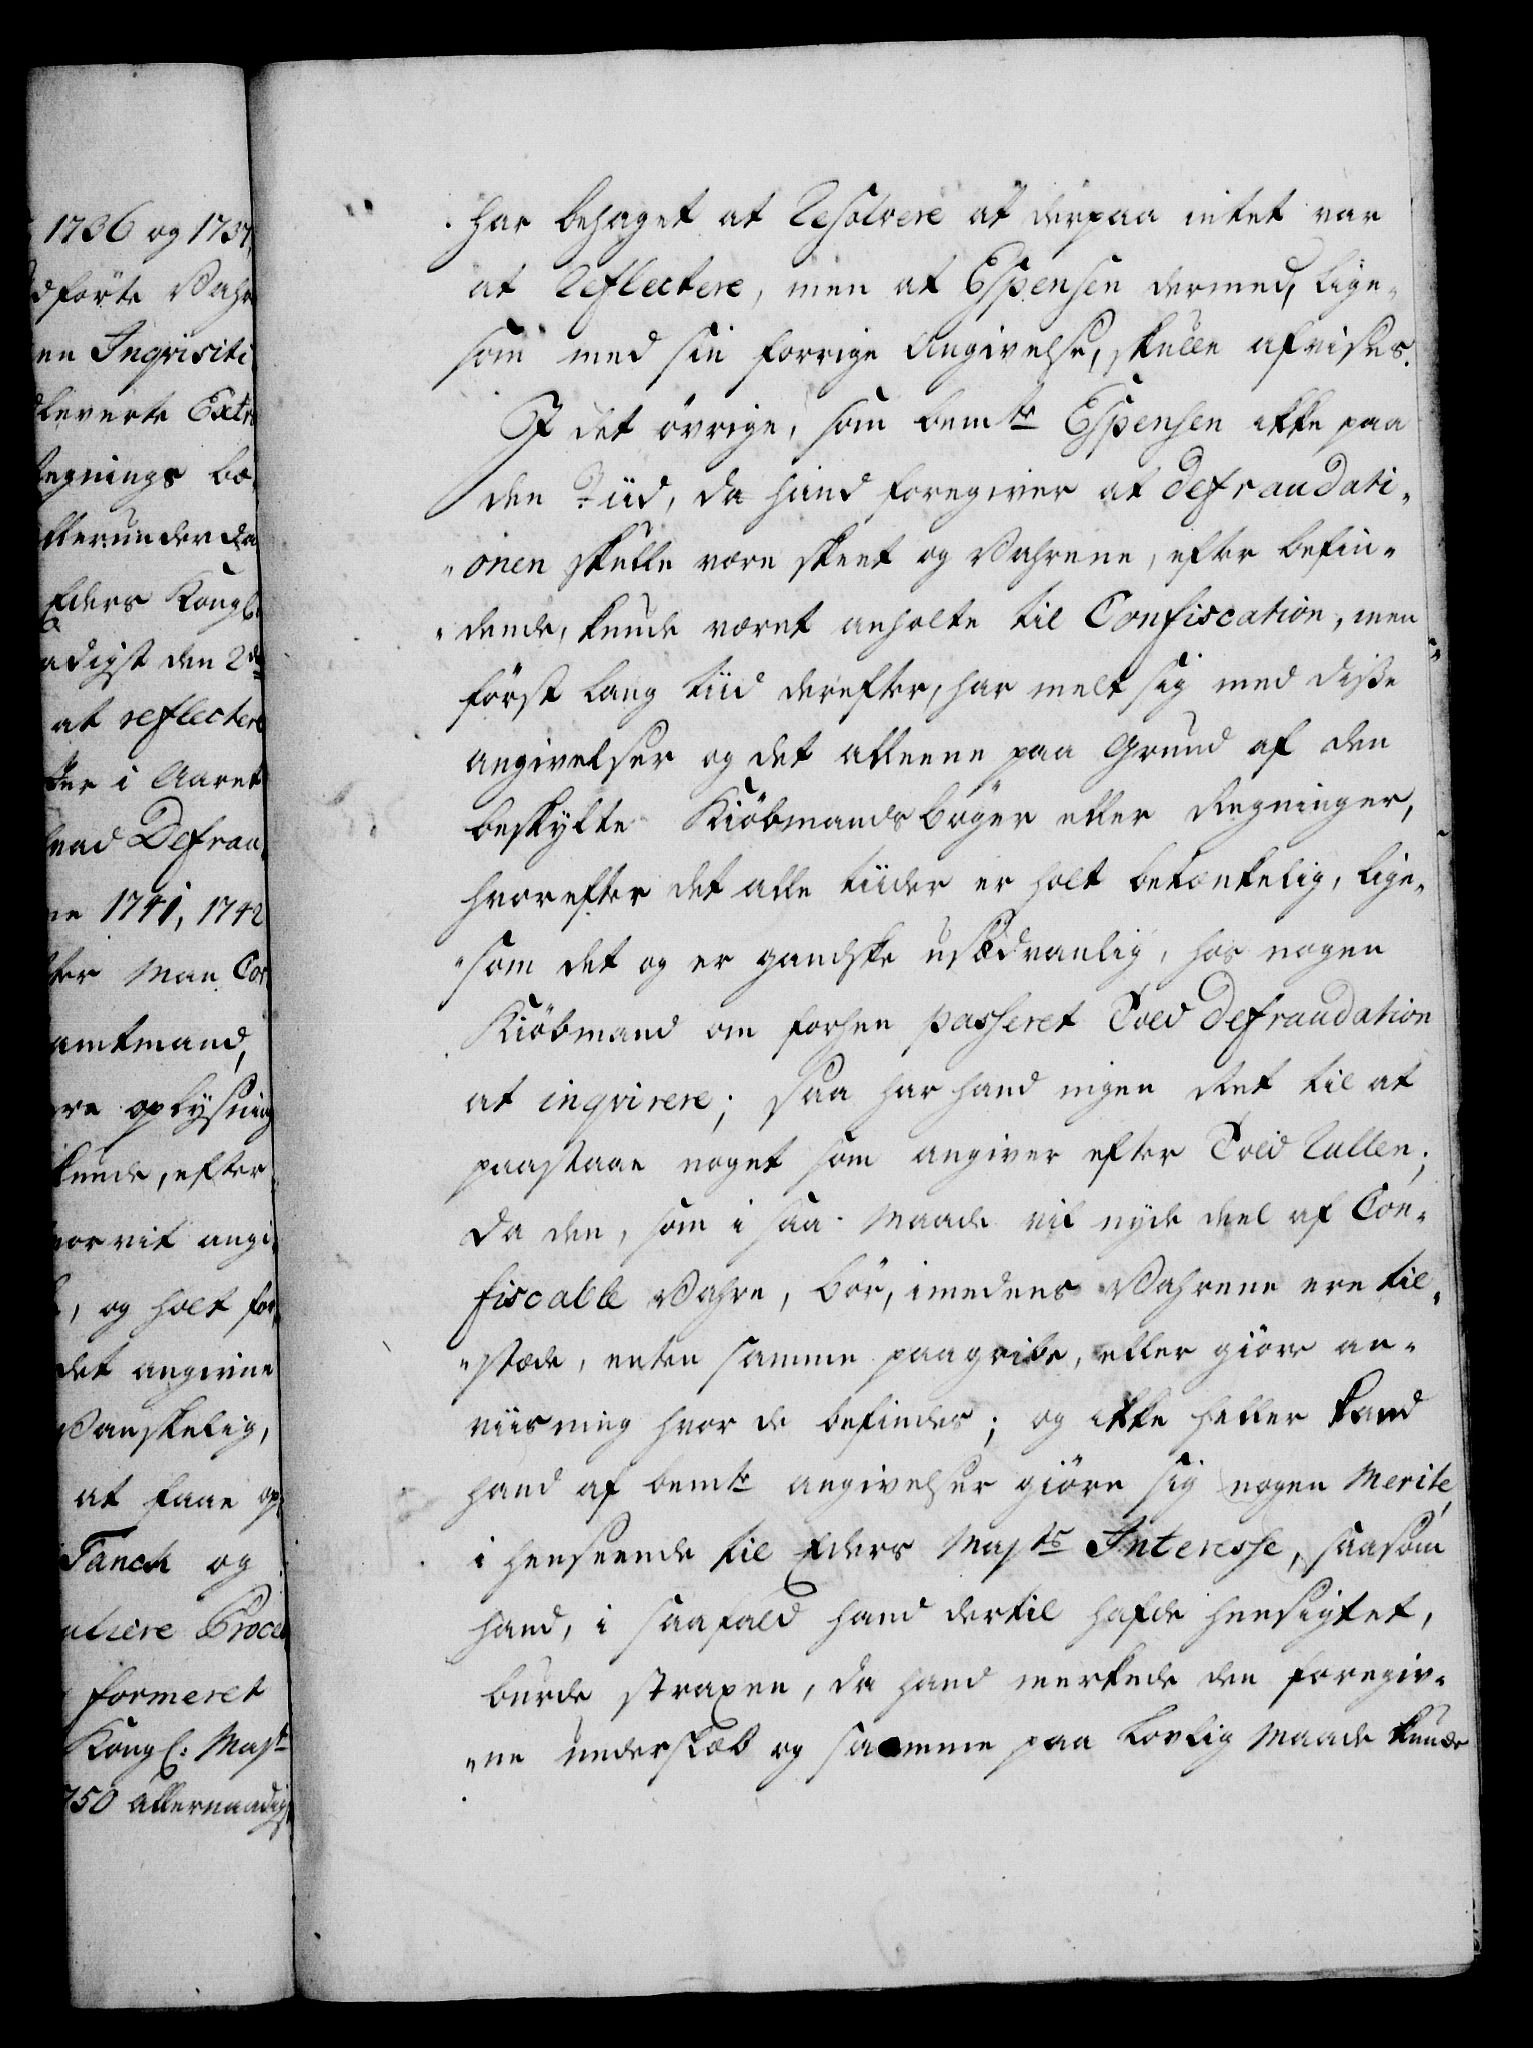 1736 og 1737,
dförte Vahr
en Inqvisiti
leverte Extr
egnings bö
llerunder da
Eders Kongl.
adigst den 2de
at reflectere
ker i Aaret
vad Defrau
ne 1741, 1742
ter Man Con
amtmand,
ere oplysning
kunde, efter
hor vit angi
, og holt for
det angivne
Vanskelig,
at faae op
Tanch og
atiere Proce
formeret
Kongl: Mayt
750 allernaadigst
har behaget at Resolvere at derpaa intet var
at Reflectere, men at Espensen dermed, lige-
som med sin forrige Angivelse, skulle afvises.
I det övrige, som bemte Espensen ikke paa
den Tiid, da hand foregiver at defraudati-
onen skulle være skeet og Vahrene, efter befin-
dende, kunde været anholte til Confiscation, men
först lang tiid derefter, har melt sig med disse
angivelser og det alleene paa Grund af den
beskylte Kiöbmands böger eller Regninger,
hvorefter det alle tiider er holt betænkelig, lige-
som det og er gandske usædvanlig, hos nogen
Kiöbmand om forhen passeret Told defraudation
at inqvirere; saa har hand ingen Ret til at
paastaae noget som angiver efter Told Rullen;
da den, som i saa Maade vil nyde deel af Con-
fiscable Vahre, bör, imedens Vahrene ere til-
stæde, enten samme paagribe, eller giöre an-
viisning hvor de befindes; og ikke heller kand
hand af bemte angivelser giöre sig nogen Merite,
i henseende til Eders Mayts Interesse, saasom
hand, i saafald hand dertil hafde hensigtet,
burde straxen, da hand merkede den foregiv-
ne underslæb og samme paa lovlig Maade kunde